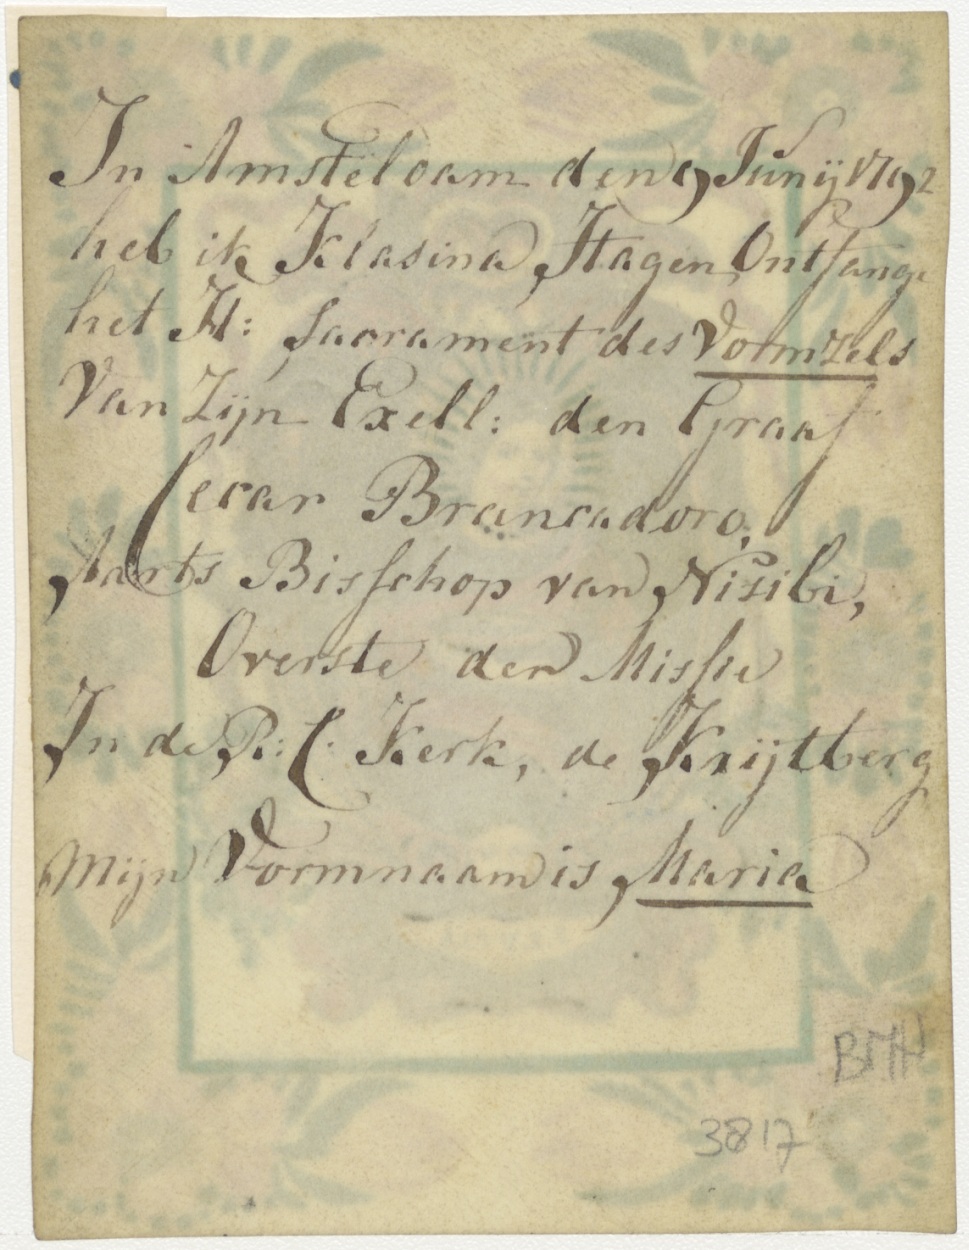 In Amsteldam den 9 Junij 1792
heb ik Klasina Hagen, Ontfange
het H: Sacrament des Vormzels
Van Zijn Exell: den Graaf
Cecar Brancadoro,
Aarts Bisschop van Nisibi,
Overste der Missie
In de R: C: Kerk, de Krijtberg
Mijn Vormnaam is Maria
BMH
3817